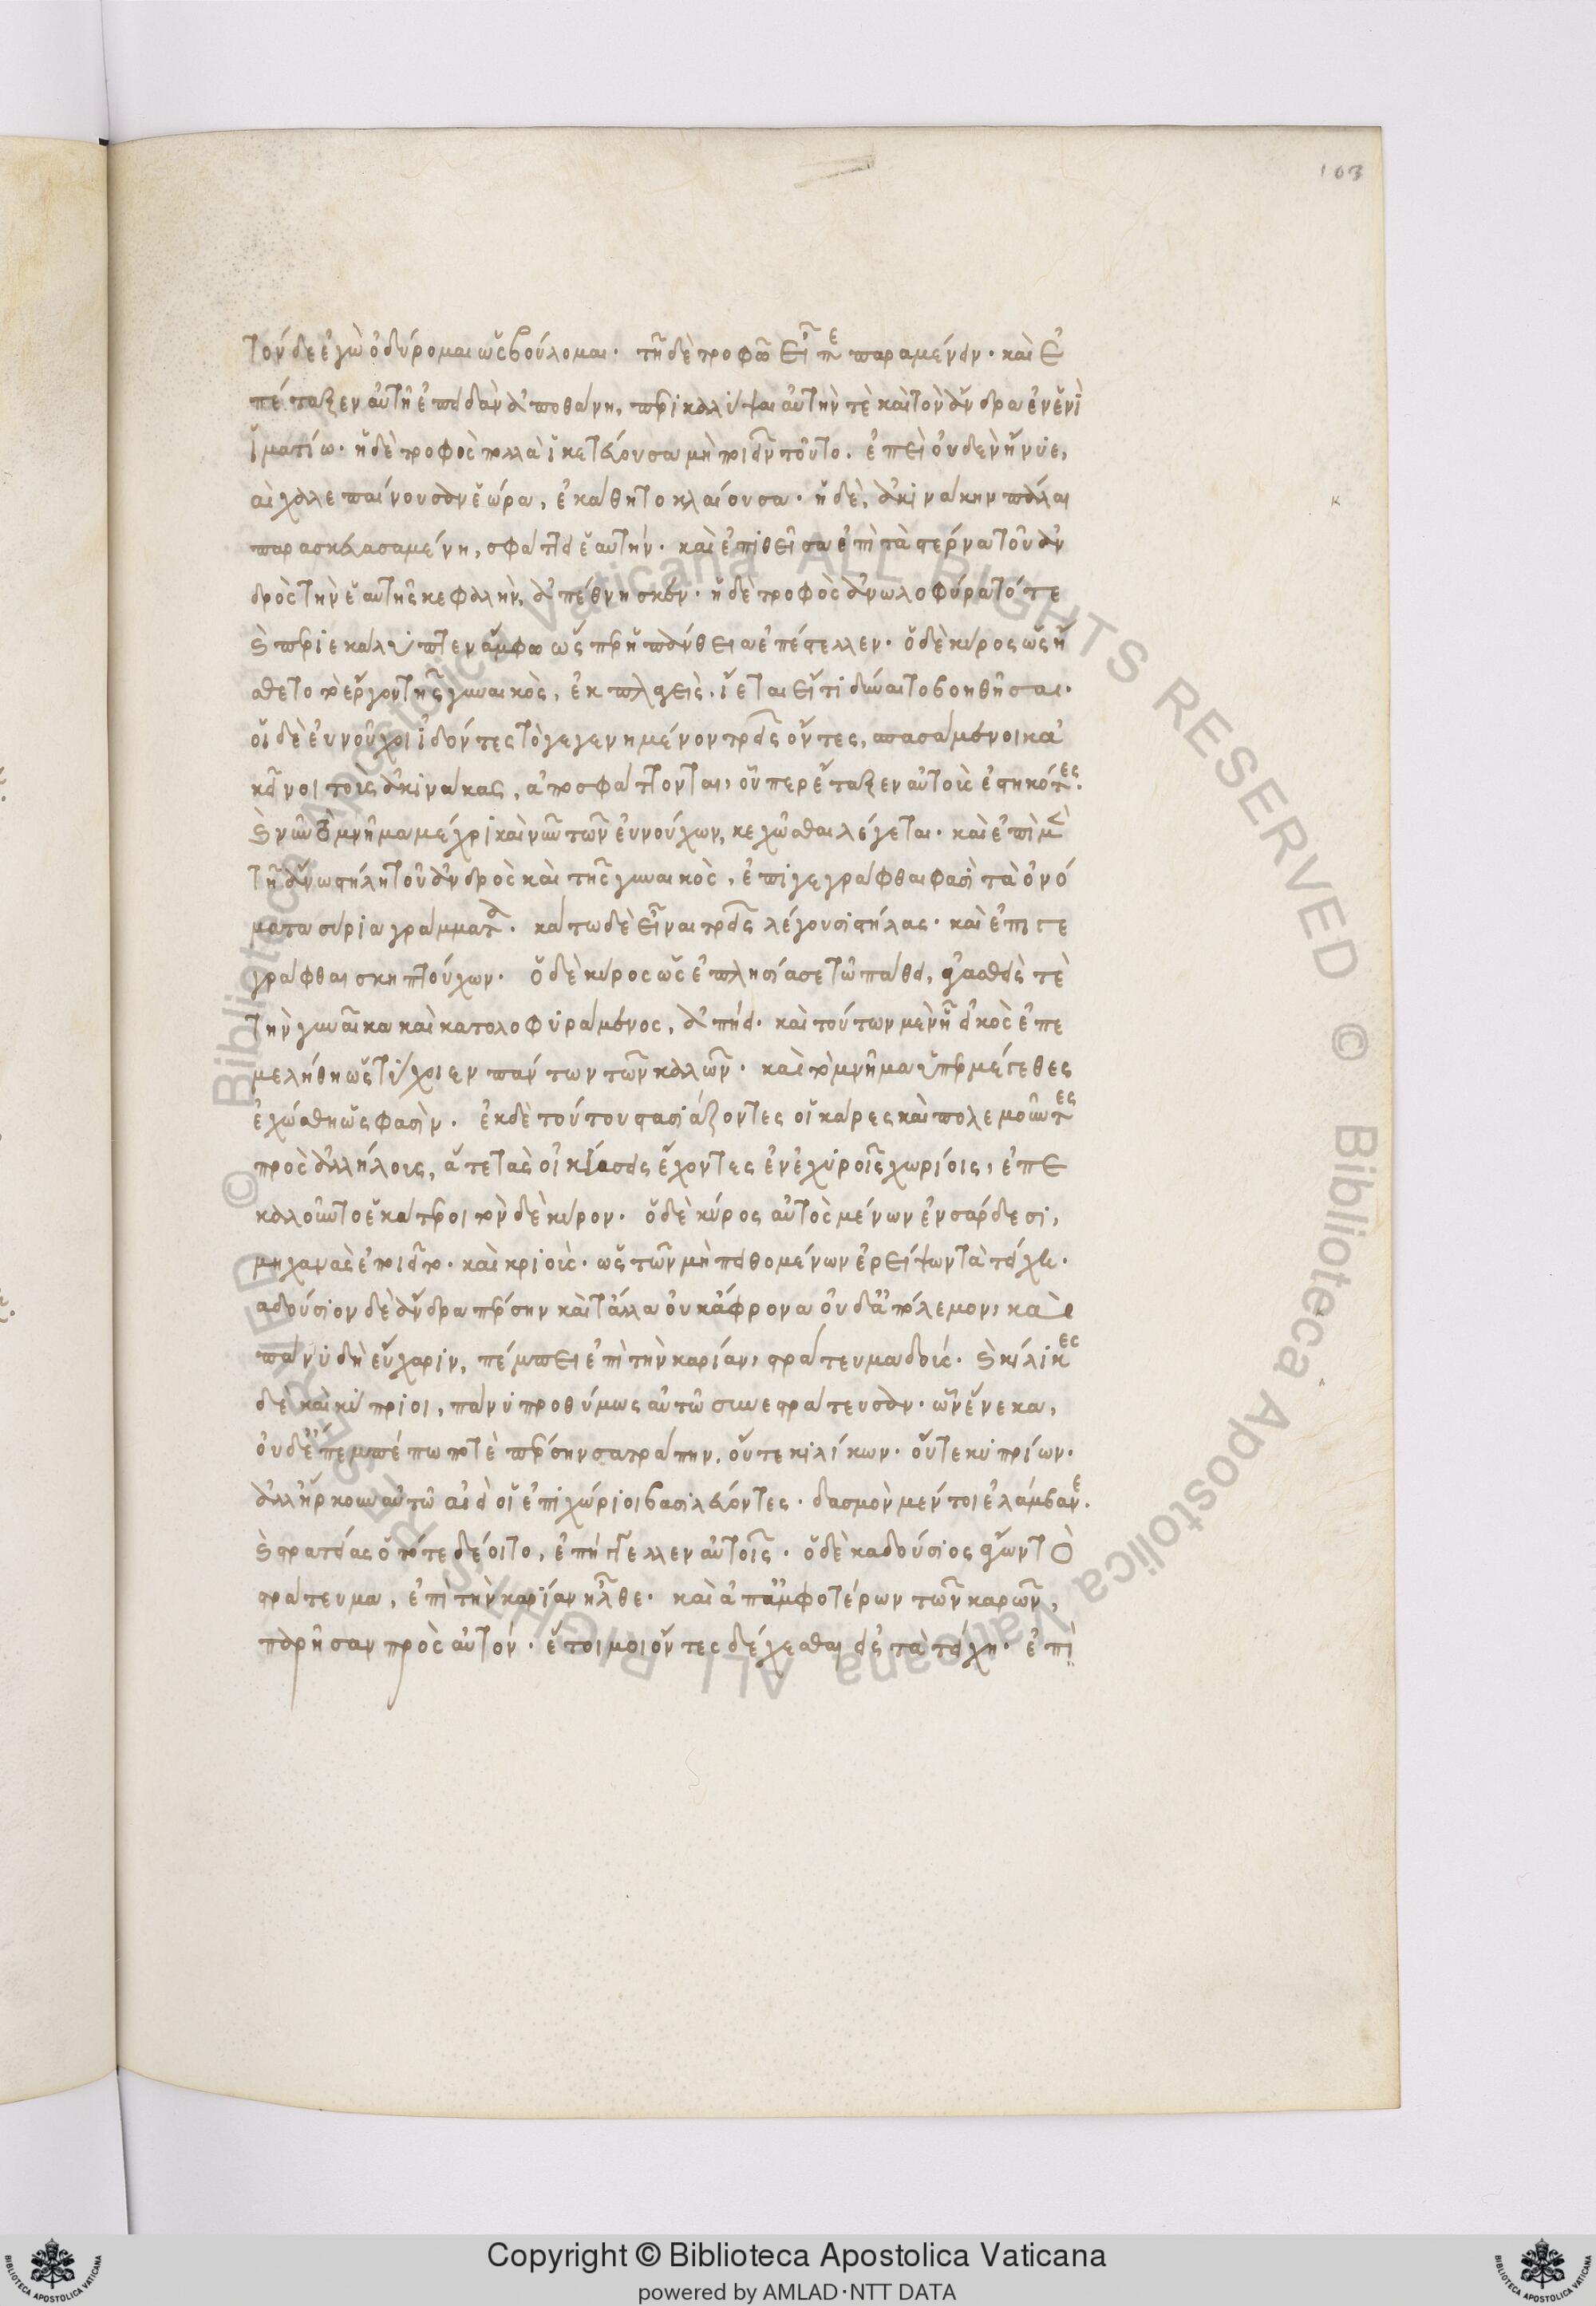 103
τόνδε ἐγὼ ὀδύρομαι ὡς βούλομαι· τῆ δὲ τροφῶ εἶπε παραμένειν· καὶ ἐ
πέταξεν αὐτῆ ἐπειδὰν ἀποθάνη, περικαλύψαι αὐτήν τὲ καὶ τὸν ἄνδρα ἐν ἑνὶ
ἱματίω· ἡ δὲ τροφὸς πολλὰ ἱκετεύουσα μὴ ποιεῖν τοῦτο. ἐπεὶ οὐδὲν ἥνυε,
αι χαλεπαίνουσαν ἑώρα, ἐκάθητο κλαίουσα· ἡ δὲ, ἀκινάκην πάλαι
παρασκευασαμένη, σφάττει ἑαυτήν· καὶ ἐπιθεῖσα ἐπὶ τὰ στέρνα τοῦ ἀν
δρὸς τὴν ἑαυτῆς κεφαλὴν, ἀπέθνησκεν· ἡ δὲ τροφὸς ἀνωλοφύρατό τε
καὶ περιεκάλυπτεν ἄμφω ὥσπερ ἡ πάνθεια ἐπέστελλεν· ὁ δὲ κῦρος ὡς ἤ
σθετο τὸ ἔργον τῆς γυναικὸς, ἐκπλαγεὶς, ἵεται εἴ τι δύναιτο βοηθῆσαι·
οἱ δὲ εὐνοῦχοι ἰδόντες τὸ γεγενημένον τρεῖς ὄντες, σπασάμενοι κα
κεῖνοι τοὺς ἀκινάκας, ἀποσφάττονται, οὗπερ ἔταξεν αὐτοὺς ἑστηκότες.
καὶ νῦν τὸ μνῆμα μέχρι καὶ νῦν τῶν εὐνούχων, κεχῶσθαι λέγεται· καὶ ἐπὶ μὲν
τῆ ἄνω στήλη τοῦ ἀνδρὸς καὶ τῆς γυναικὸς, ἐπιγεγράφθαι φασὶ τὰ ὀνό
ματα σύρια γράμματα· κάτω δὲ εἶναι τρεῖς λέγουσι στήλας· καὶ ἐπιγε
γράφθαι σκηπτούχων· ὁ δὲ κῦρος ὡς ἐπλησίασε τῶ πάθει, ἀγασθείς τὲ
τὴν γυναῖκα καὶ κατολοφυράμενος, ἀπήει· καὶ τούτων μὲν ἧ εἰκὸς ἐπε
μελήθη ὡς τύχοιεν πάντων τῶν καλῶν· καὶ τὸ μνῆμα ὑπερμέγεθες
ἐχώσθη ὥς φασὶν· ἐκ δὲ τούτου στασιάζοντες οἱ κᾶρες καὶ πολεμοῦντες
πρὸς ἀλλήλους, ἅτε τὰς οἰκήσεις ἔχοντες ἐν ἐχυροῖς χωρίοις, ἐπε
καλοῦντο ἑκάτεροι τὸν δὲ κῦρον· ὁ δὲ κύρος αὐτὸς μένων ἐν σάρδεσι,
μηχανὰς ἐποιεῖτο· καὶ κριοὺς· ὡς τῶν μὴ πειθομένων ἐρείψων τὰ τείχη·
αδούσιον δὲ ἄνδρα πέρσην καὶ τἄλλα οὐκ ἄφρονα οὐδ' ἀπόλεμον, καὶ
πάνυ δὴ εὔχαριν, πέμπει ἐπὶ τὴν καρίαν, στράτευμα δούς· καὶ κίλικες
δὲ καὶ κύπριοι, πάνυ προθύμως αὐτῶ συνεστράτευσαν· ὧν ἕνεκα,
οὐδ' ἔπεμπέ πωποτὲ πέρσην σατράπην, οὔτε κιλίκων· οὔτε κυπρίων·
ἀλλ' ἤρκουν αὐτῶ αἰεὶ οἱ ἐπιχώριοι βασιλεύοντες· δασμὸν μέντοι ἐλάμβανε·
καὶ στρατείας ὁπότε δέοιτο, ἐπήγγελλεν αὐτοῖς· ὁ δὲ καδούσιος ἄγων τὸ
στράτευμα, ἐπὶ τὴν καρίαν ἦλθε· καὶ ἀπ' ἀμφοτέρων τῶν καρῶν,
παρῆσαν πρὸς αὐτόν· ἕτοιμοι ὄντες δέχεσθαι εἰς τὰ τείχη· ἐπὶ
Copyright © Biblioteca Apostolica Vaticana
powered by AMLAD·NTT DATA